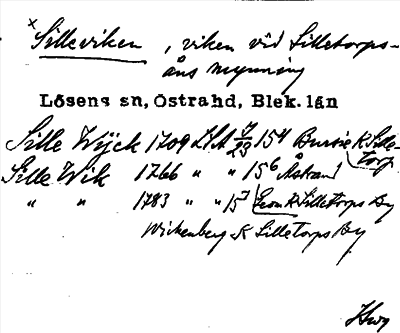 x Silleviken, viken vid Silletorps-
åns mynning
Lösens sn, Östrahd, Blek. län
Sille Wijck 1709 LSA 7/23 154 Bursie K Sille-
torp
Sille Wik 1766 " " 156 Åstrand
" " 1783 " " 157 Leon K Silletorps By
Wickenberg K Silletorps By
Hwg